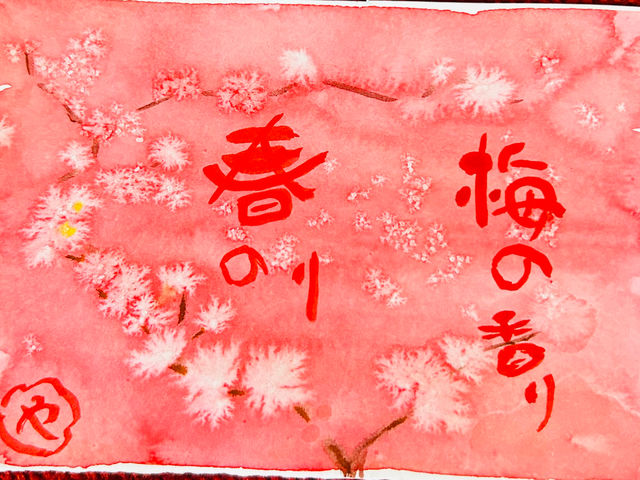 梅の香り
春のり
や